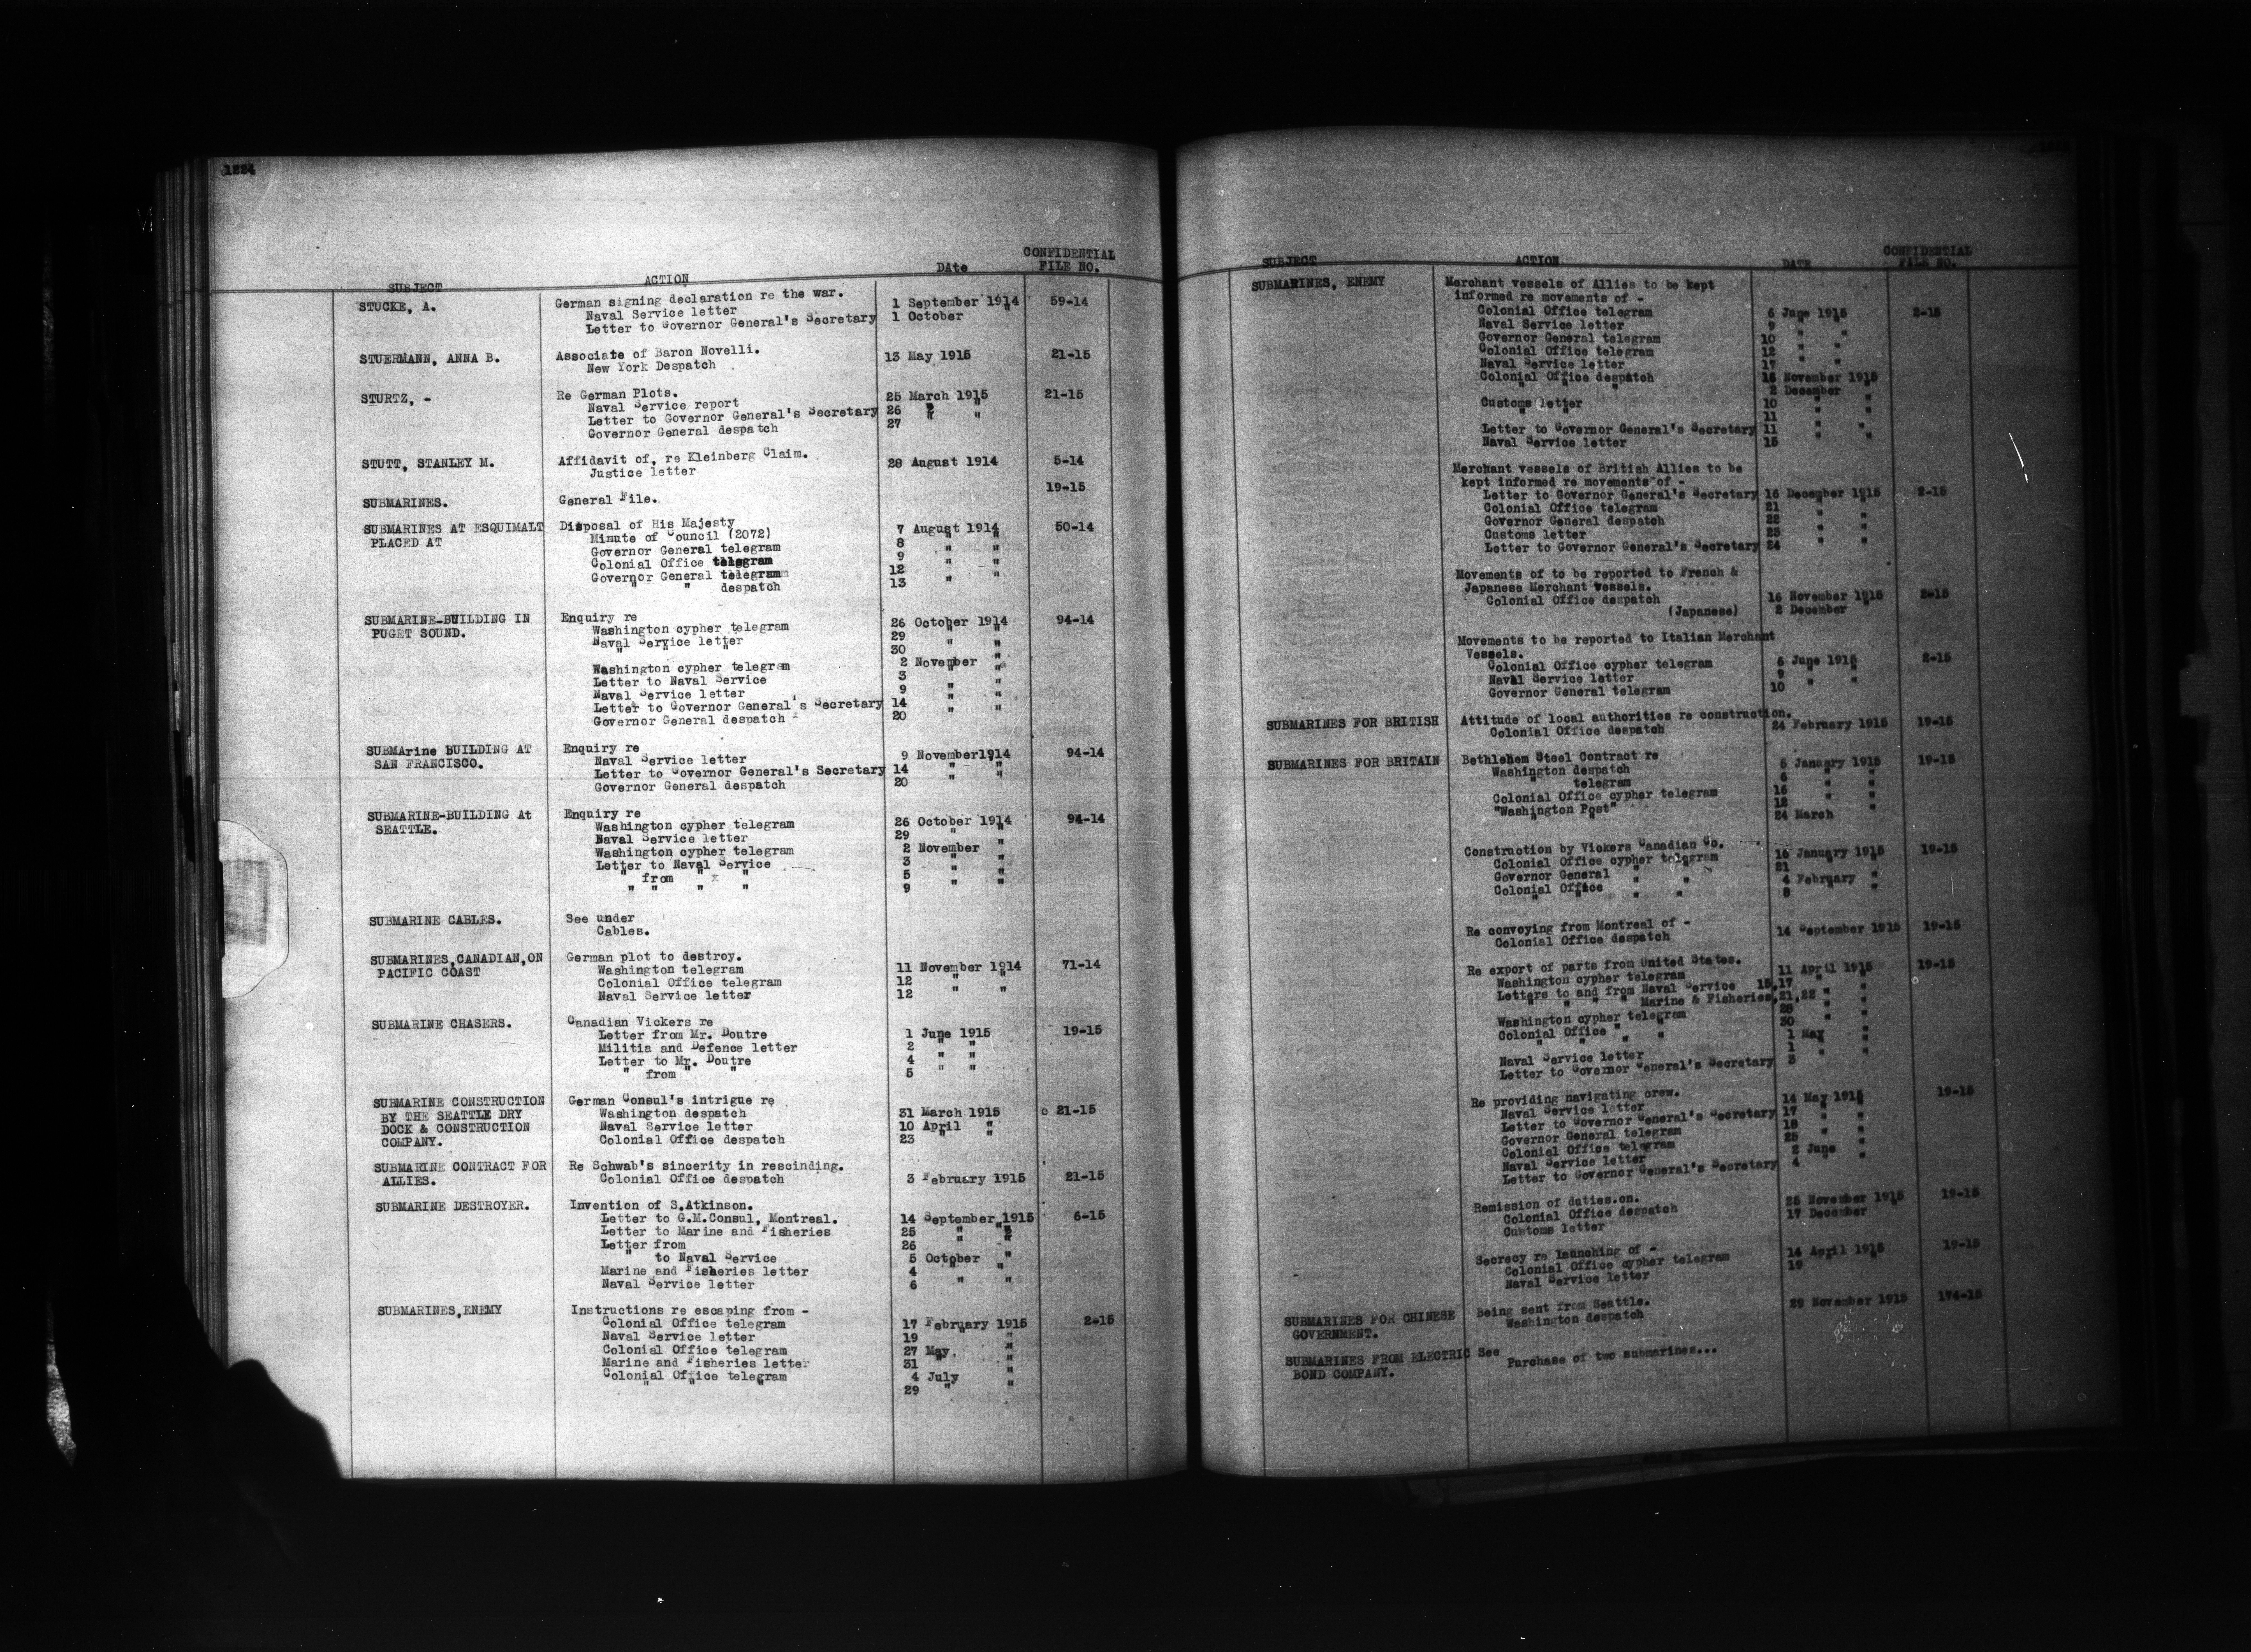 1224
SUBJECT ACTION DAte CONFIDENTIAL FILE NO.
STUCKE, A. German signing declaration re the war.
Naval Service letter 1 September 1914 59-14
Letter to Governor General's Secretary 1 October "
STUERMANN, ANNA B. Associate of Baron Novelli.
New York Despatch 13 May 1915 21-15
STURTZ, - Re German Plots.
Naval Service report 25 March 1915 21-15
Letter to Governor General's Secretary 26 " "
Governor General despatch 27 " "
STUTT, STANLEY M. Affidavit of, re Kleinberg Claim.
Justice letter 28 August 1914 5-14
SUBMARINES. General File. 19-15
SUBMARINES AT ESQUIMALT Disposal of His Majesty
PLACED AT Minute of Council (2072) 7 August 1914 50-14
Governor General telegram 8 " "
Colonial Office telegram 9 " "
Governor General telegram 12 " "
" " despatch 13 " "
SUBMARINE-BUILDING IN Enquiry re
PUGET SOUND. Washington cypher telegram 26 October 1914 94-14
Naval Service letter 29 " "
" " " 30 " "
Washington cypher telegram 2 November "
Letter to Naval Service 3 " "
Naval Service letter 9 " "
Letter to Governor General's Secretary 14 " "
Governor General despatch 20 " "
SUBMArine BUILDING AT Enquiry re
SAN FRANCISCO. Naval Service letter 9 November1914 94-14
Letter to Governor General's Secretary 14 " "
Governor General despatch 20 " "
SUBMARINE-BUILDING At Enquiry re
SEATTLE. Washington cypher telegram 26 October 1914 94-14
Naval Service letter 29 " "
Washington cypher telegram 2 November "
Letter to Naval Service 3 " "
" from " " 5 " "
" " " " 9 " "
SUBMARINE CABLES. See under
Cables.
SUBMARINES,CANADIAN,ON German plot to destroy.
PACIFIC COAST Washington telegram 11 November 1914 71-14
Colonial Office telegram 12 " "
Naval Service letter 12 " "
SUBMARINE CHASERS. Canadian Vickers re
Letter from Mr. Doutre 1 June 1915 19-15
Militia and Defence letter 2 " "
Letter to Mr. Doutre 4 " "
" from " " 5 " "
SUBMARINE CONSTRUCTION German Consul's intrigue re
BY THE SEATTLE DRY Washington despatch 31 March 1915 21-15
DOCK & CONSTRUCTION Naval Service letter 10 April "
COMPANY. Colonial Office despatch 23 " "
SUBMARINE CONTRACT FOR Re Schwab's sincerity in rescinding.
ALLIES. Colonial Office despatch 3 February 1915 21-15
SUBMARINE DESTROYER. Invention of S.Atkinson.
Letter to G.M.Consul, Montreal. 14 September 1915 6-15
Letter to Marine and Fisheries 25 " "
Letter from 26 " "
" to Naval Service 5 October "
Marine and Fisheries letter 4 " "
Naval Service letter 6 " "
SUBMARINES,ENEMY Instructions re escaping from -
Colonial Office telegram 17 February 1915 2-15
Naval Service letter 19 " "
Colonial Office telegram 27 May. "
Marine and Fisheries letter 31 " "
Colonial Office telegram 4 July "
" " " 29 " "
SUBJECT ACTION DATE CONFIDENTIAL FILE NO.
SUBMARINES, ENEMY Merchant vessels of Allies to be kept
informed re movements of -
Colonial Office telegram 6 June 1915 2-15
Naval Service letter 9 " "
Governor General telegram 10 " "
Colonial Office telegram 12 " "
Naval Service letter 17 " "
Colonial Office despatch 15 November 1915
" " " 2 December "
Customs letter 10 " "
" " 11 " "
Letter to Governor General's Secretary 11 " "
Naval Service letter 15 " "
Merchant vessels of British Allies to be
kept informed re movements of -
Letter to Governor General's Secretary 16 December 1915 2-15
Colonial Office telegram 21 " "
Governor General despatch 22 " "
Customs letter 23 " "
Letter to Governor General's Secretary 24 " "
Movements of to be reported to French &
Japanese Merchant Vessels.
Colonial Office despatch 16 November 1915 2-15
(Japanese) 2 December "
Movements to be reported to Italian Merchant
Vessels.
Colonial Office cypher telegram 6 June 1915 2-15
Naval Service letter 9 " "
Governor General telegram 10 " "
SUBMARINES FOR BRITISH Attitude of local authorities re construction.
Colonial Office despatch 24 February 1915 19-15
SUBMARINES FOR BRITAIN Bethlehem Steel Contract re
Washington despatch 5 January 1915 19-15
" telegram 6 " "
Colonial Office cypher telegram 16 " "
"Washington Post" 12 " "
24 March "
Construction by Vickers Canadian Co.
Colonial Office cypher telegram 16 January 1915 19-15
Governor General " " 21 " "
Colonial Office " " 4 February "
" " " " 8 " "
Re convoying from Montreal of -
Colonial Office despatch 14 September 1915 19-15
Re export of parts from United States.
Washington cypher telegram 11 April 1915 19-15
Letters to and from Naval Service 15,17 " "
" " " " Marine & Fisheries,21,22 " "
Washington cypher telegram 28 " "
Colonial Office " " 30 " "
" " " " 1 May "
Naval Service letter 1 " "
Letter to Governor General's Secretary 3 " "
Re providing navigating crew.
Naval Service letter 14 May 1915 19-15
Letter to Governor General's Secretary 17 " "
Governor General telegram 18 " "
Colonial Office telegram 25 " "
Naval Service letter 2 June "
Letter to Governor General's Secretary 4 " "
Remission of duties.on.
Colonial Office despatch 25 November 1915 19-15
Customs letter 17 December "
Secrecy re launching of -
Colonial Office cypher telegram 14 April 1915 19-15
Naval Service letter 19 " "
SUBMARINES FOR CHINESE Being sent from Seattle.
GOVERNMENT. Washington despatch 29 November 1915 174-15
SUBMARINES FROM ELECTRIC See
BOND COMPANY. Purchase of two submarines...